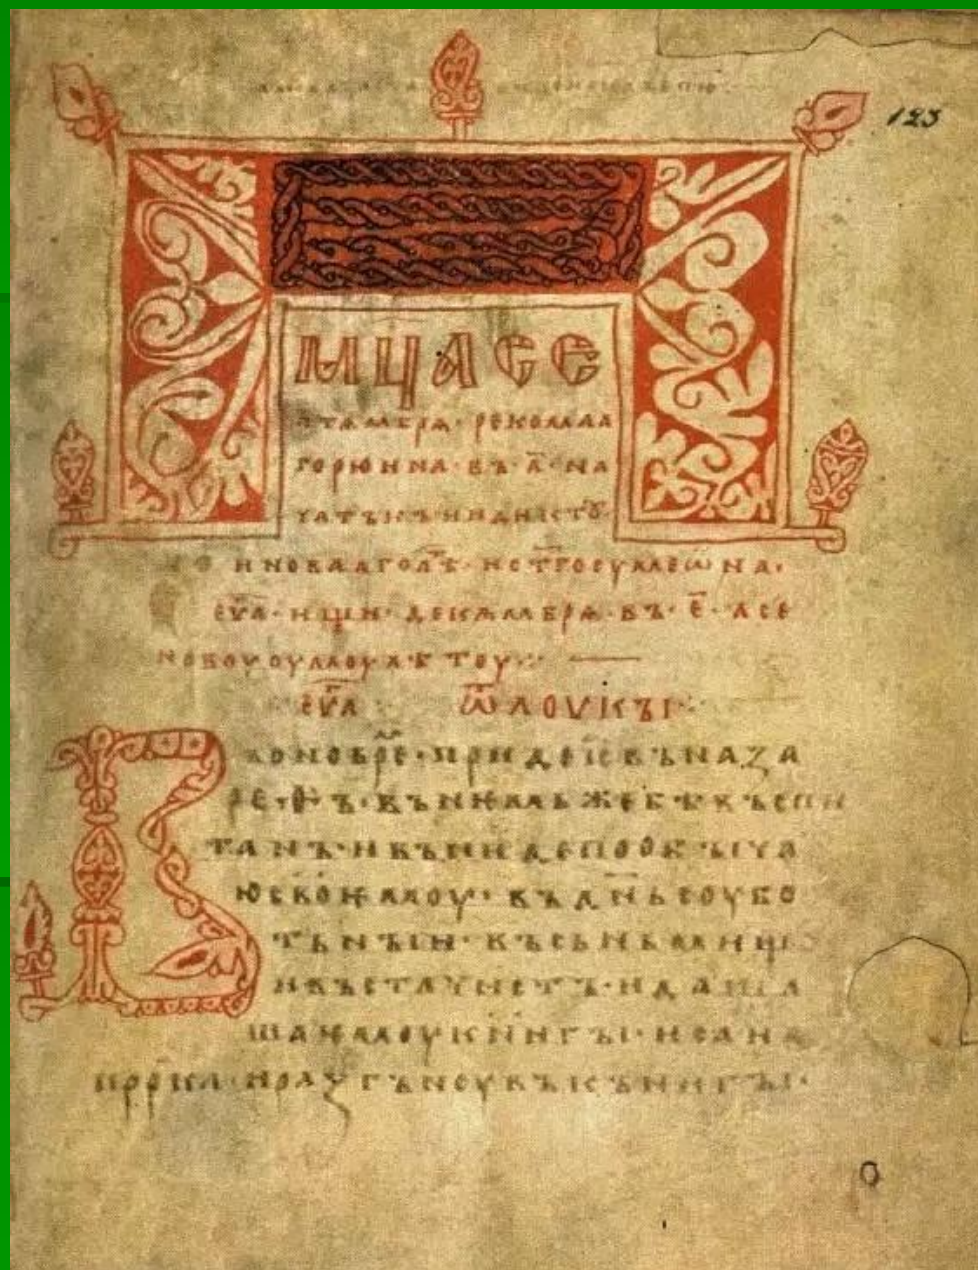 123
МЦА СЕ
птѧмбрѧ · рекомаа
горюина · въ · а҃ · на
чатъкъ индистꙋ
и новалголѣ · и ст҃гоєѵмеѡна ·
еѵа · ищи · декѧмбрѧ · въ · е҃ · асе
новоуоумоулѣтоу ·:·
еѵа ѿлоукꙑ
оновре · приде іс въ наза
ре · ѳ · ъ · въ немьже бѣ въспи
танъ · и въниде по обꙑча
ю своемоу · въ дн҃ь соубо
тьнꙑи · въ сьньмищ
и въста чистъ · и даша
ша емоу кн҃игꙑ · иса на
пррка · и разгъноувъ кънигꙑ ·